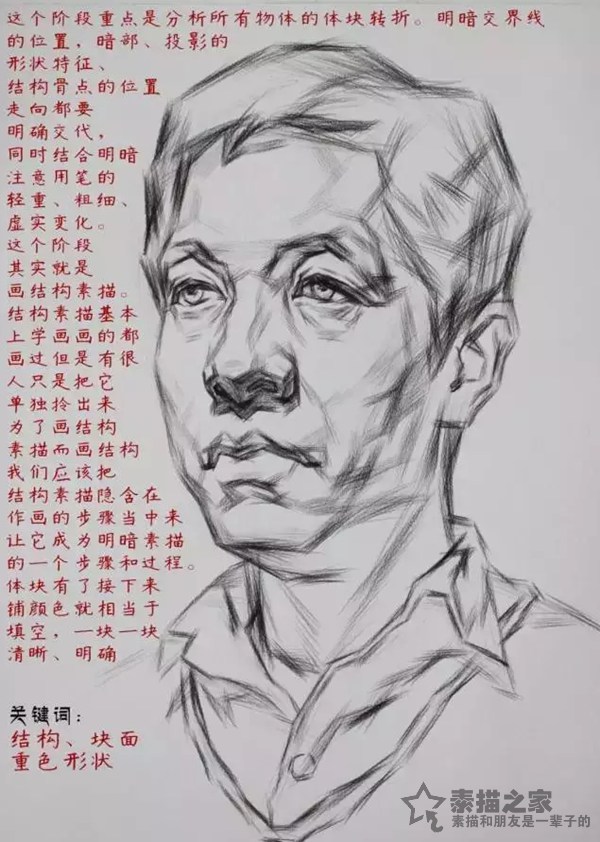 这个阶段重点是分析所有物体的体块转折。明暗交界线
的位置，暗部、投影的
形状特征、
结构骨点的位置
走向都要
明确交代，
同时结合明暗
注意用笔的
轻重、粗细、
虚实变化。
这个阶段
其实就是
画结构素描。
结构素描基本
上学画画的都
画过但是有很
人只是把它
单独拎出来
为了画结构
素描而画结构
我们应该把
结构素描隐含在
作画的步骤当中来
让它成为明暗素描
的一个步骤和过程。
体块有了接下来
铺颜色就相当于
填空，一块一块
清晰、明确
关键词：
结构、块面
重色形状
泰描之家
素描和朋友是一辈子的